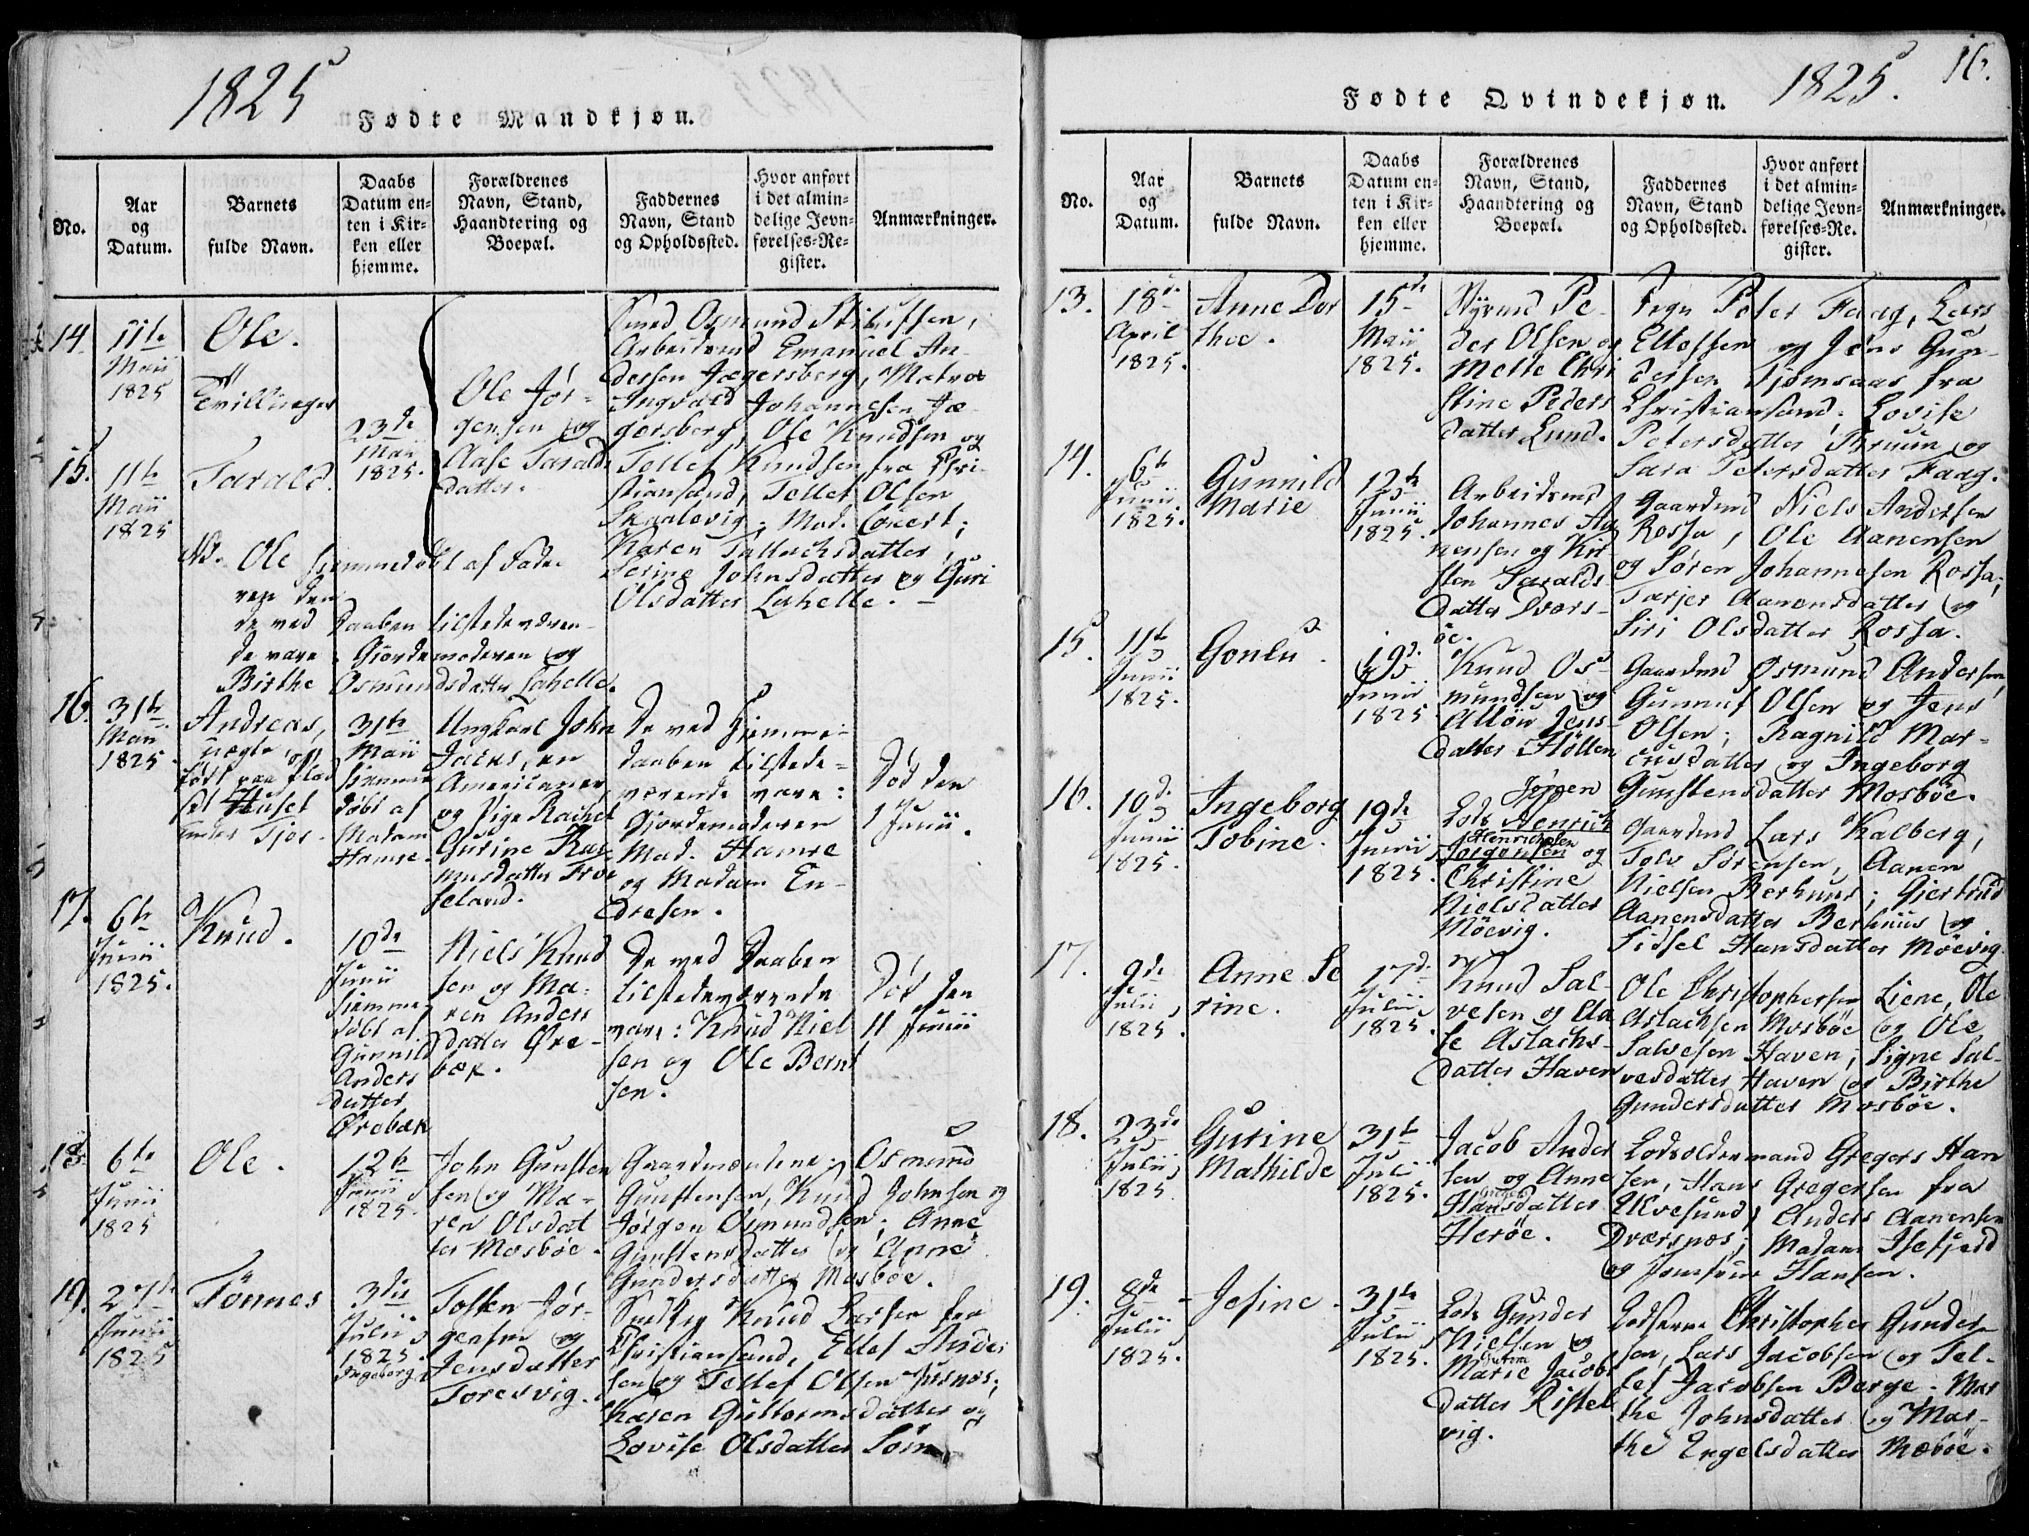 1825
Fødte Mandkjøn.
No.
Aar
og
Datum.
Barnets
fulde Navn.
Daabs
Datum en-
ten i Kir-
ken eller
hjemme.
Forældrenes
Navn, Stand,
Haandtering og
Boepæl.
Faddernes
Navn, Stand
og Opholdssted.
Hvor anført
i det almin-
delige Jevn-
førelses-Re-
gister.
Anmærkninger.
14.
11te
Maii
1825
Ole.
Tvillinger
15.
11te
Maii
1825
Tarald.
23de
Maii
1825.
Ole Jør-
gensen og
Aase Taralds
datter.
Smed Osmund
Arbeidsmd Emanuel An-
dersen Jægersberg, Matros
Ingvald Johannesen Jæ-
gersberg, Ole Knudsen og
Tellef Knudsen fra Chri-
stiansand, Tellef Olsen
Skaalevig; Mad. Conert;
Karen Tallachsdatter,
Serine Johnsdatter og Guri
Olsdatter Lahelle.
NB. Ole hjemmedøbt af Fade-
ren den
de ved Daaben tilstedeværen-
de vare Gjordemoderen og
Birthe Osmundsdatter Lahelle.
16.
31te
Maii
1825
Andreas,
uægte, op
ført paa
set Huset
under Tjos.
31te
Maii
hjemme
døbt af
Madam
Hamre.
Ungkarl John
Jacks, en
Americaner
og Pige Rachel
Gurine Ras-
musdatter Troe
seland.
De ved Hjemme-
daaben tilstede-
værende vare:
Gjordemoderen
Mad. Hamre
og Madam En-
dresen.
Død den
1 Junii.
17.
6te
Junii
1825.
Knud.
10de
Junii
hjemme
døbt af
Gunnild
Anders
datter
Ørebæk
Niels Knud
sen og Ma-
ren Anders
datter Øre-
bæk.
De ved Daaben
tilstedeværende
vare: Knud Niel
sen og Ole Bernt
sen.
Død den
11 Junii
18.
6te
Junii
1825
Ole.
12te
Junii
1825.
John Gunsten
sen og Ma-
ren Olsdat
ter Mosbøe.
Gaardmændene: Osmund
Gunstensen, Knud Johnsen og
Jørgen Osmundsen; Anne
Gunstensdatter og Anne
Gundersdatter Mosbøe.
19.
27de
Junii
1825
Tönnes
3die
Julii
1825.
Ingeborg
Tosten Jør-
gensen og
Jensdatter
Toresvig.
Knud Larsen fra
Christiansand, Ellef Ander
sen og Tellef Olsen Jusnæs;
Karen Guttormsdatter og
Lovise Olsdatter Söm.
1825.
16.
Fødte Qvindekjøn.
No.
Aar
og
Datum.
Barnets
fulde Navn.
Daabs
Datum en-
ten i Kir-
ken eller
hjemme.
Forældrenes
Navn, Stand,
Haandtering og
Boepæl.
Faddernes
Navn, Stand
og Opholdssted.
Hvor anført
i det almin-
delige Jevn-
førelses-Re-
gister.
Anmærkninger.
13.
18de
April
1825.
Anne Dor
thee.
15de
Maii
1825.
Styrmd Pe-
der Olsen og
Mette Chri
stine Peders
datter Lund.
Peter Faag, Lars
Ellefsen og Jens Gun-
dersen Tjomsaas fra
Christiansand; Lovise
Petersdatter Thruun og
Sara Petersdatter Faag.
14.
6te
Junii
1825.
Gunnild
Marie
12te
Junii
1825.
Arbeidsmd
Johannes Aa
nensen og Kir
sten Taralds
datter Dværs-
øe.
Gaardmd Niels Andersen
Rossa, Ole Aanensen
og Søren Johannesen Rossa;
Tarjer Aanensdatter og
Siri Olsdatter Rossa.
15.
11te
Junii
1825.
Gonlu.
19de
Junii
1825
Knud Os-
mundsen og
Allow Jens-
datter Hölten
Gaardmd Osmund Andersen,
Gunnuf Olsen og Jens
Olsen; Ragnild Mar-
cusdatter og Ingeborg
Gunstensdatter Mosbøe.
16.
10de
Junii
1825.
Ingeborg
Tobine.
19de
Junii
1825.
Jørgen
Lods Henrich
Henrichsen
Jørgensen og
Christine
Nielsdatter
Möevig.
Gaardmd Lars Kalberg,
Tolv Sørensen, Aanen
Nielsen Berhuus; Gjertrud
Aanensdatter Berhuus og
Sidsel Hansdatter Möevig.
17.
9de
Julii
1825.
Anne Se
rine.
17de
Julii
1825.
Knud Sal-
vesen og Aa
se Aslachs-
datter Haven
Ole Christophersen Liene, Ole
Aslachsen Mosbøe og Ole
Salvesen Haven; Signe Sal-
vesdatter Haven og Birthe
Gundersdatter Mosbøe.
18.
23de
Julii
1825.
Gurine
Mathilde
31te
Julii
1825.
Jacob Ander
sen og Anne
Hansdatter
Herøe.
Lodsoldermand Gregers Han
sen, Hans Gregersen fra
Ulvesund, Anders Aanensen
Dværsnæs; Madam Isefjerd
og Jomfrue Hansen.
19.
8de
Julii
1825.
Josine.
31te
Julii
1825.
Lods Gunder
Nielsen og
Marie Jacobs
datter Ristel
vig.
Lodserne Christopher Gunder-
sen, Lars Jacobsen og Tel-
lef Jacobsen Berge. Mar
the Johnsdatter og Mar-
the Engelsdatter Mæbøe.